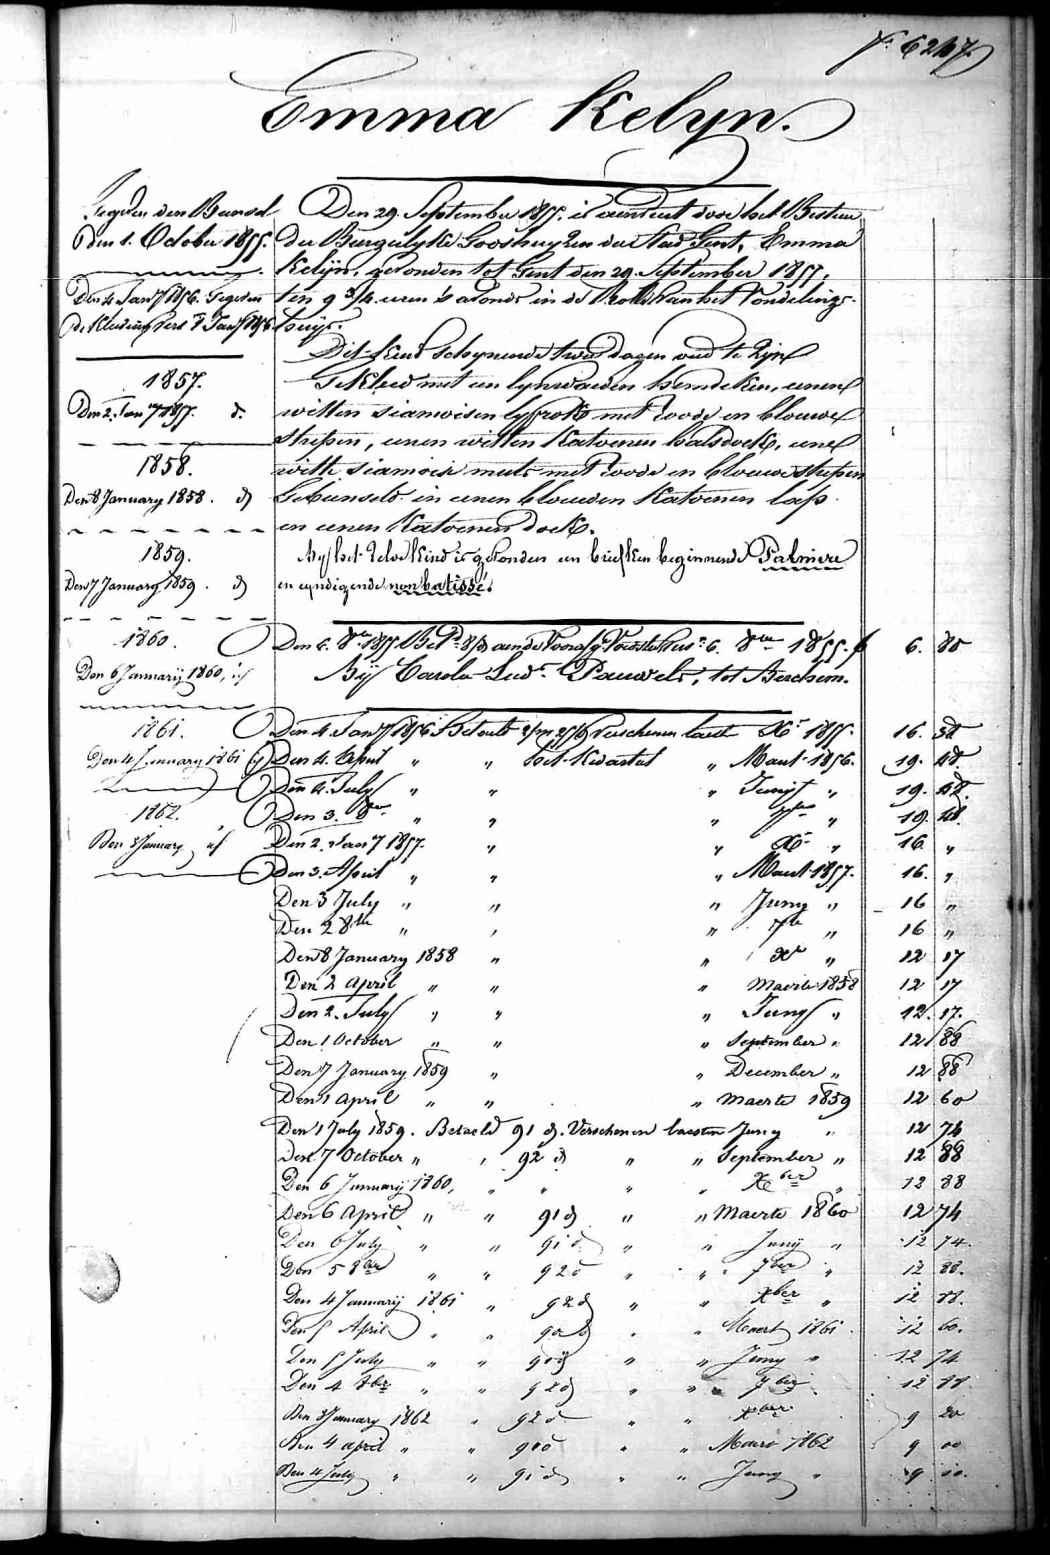 Nº 6247.
Emma Kelyn.
Gegeven den Bunsel
den 1. October 1855.
Den 4 Jany 1856. Gegeven
de Kleeding
1857.
Den 2. Jany 1857. d.
1858.
Den 8 January 1858. d
1859.
Den 7 January 1859. d
1860.
Den 6 Januarij 1860, id
1861.
Den 4 January 1861
1862.
Den 3 January
Den 29. September 1855. is door het Bestuur
der Burgerlyke Godshuyzen der Stad Gent, Emma
Kelyn, gevonden tot Gent den 29. September 1855,
ten 9 3/4 uren 's avonds in de Rolle van het Vondelings-
huys.
Dit kind schynende twee dagen oud te zyn
Gekleed met een lynwaeden hemdeken, eenen
witten siamoisen lyfrok met roode en blouwe
strepen, eenen witten Katoenen halsdoek, eene
witte siamoise muts met roode en blouwe strepen
Gebunseld in eenen blouwen Katoenen lap
en eenen Katoenen doek.
By het zelve kind is gevonden een briefken beginnende Palmire
en eyndigende non batissé.
Den 6. 8bre 1855 6. 8bre 1855. f 6. 80
By Carola Lud. Pauwels, tot Berchem.
Den 4 Jany 1856 Betaelt Verschenen laest Xr 1855. 16. 32
Den 4. April " " het Kwartael " Maert 1856. 19. 48.
Den 4. July " " " Juny " 19. 48.
Den 3. 8br " " " 7bre " 19. 48.
Den 2. Jany 1857. " " Xr " 16 "
Den 3. April " " " Maert 1857. 16. "
Den 3 July " " " Juny " 16 "
Den 2 8bre " " " 7br " 16 "
Den 8 January 1858 " " Xr " 12 17
Den 2 April " " " Maerte 1858 12 17
Den 2. July " " " Juny " 12. 17.
Den 1 October " " " September " 12 88
Den 7 January 1859 " " December " 12 88
Den 1 April " " " Maerte 1859 12 60
Den 1 July 1859. Betaeld 91 d. Verschenen laesten Juny " 12 74
Den 7 October " " 92 d " " September " 12 88
Den 6 Januarij 1860, " " " " Xber " 12 88
Den 6 April " " 91 d " " Maerte 1860 12 74
Den 6 July " " 91 d " " Junij " 12 74.
Den 5 8ber " " 92 d " " 7ber " 12 88.
Den 4 Januarij 1861 " 92 d " " Xber " 12 88.
Den 5 April " " 90 d " " Maert 1861. 12 60.
Den 5 July " " 91 d " " Juny " 12 74
Den 4 8br " " 92 d " " 7ber 12 88
Den 3 January 1862 " 92 d " " Xber 9 20
Den 4 april " " 90 d " " Maert 1862 9 00
Den 4 July " " 91 d " " Juny " 9 10.